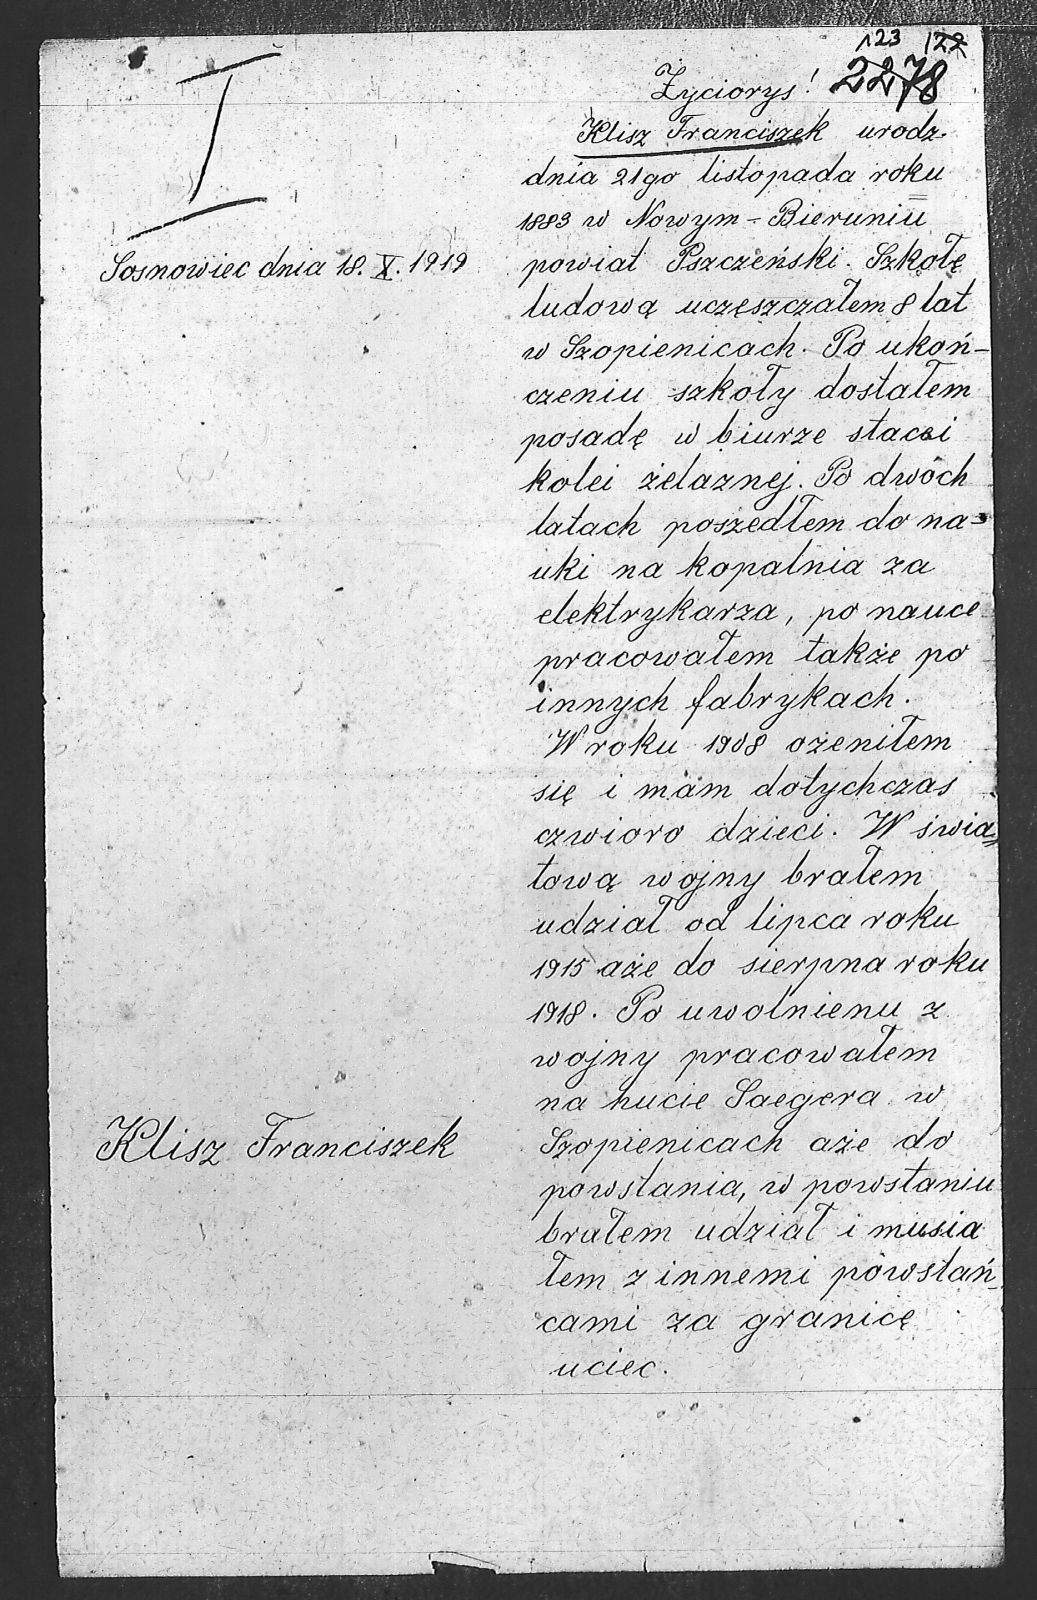 123 122
2278
I
Życiorys!
Klisz Franciszek urodz.
dnia 21go listopada roku
1883 w Nowym - Bieruniu
powiat Pszczeński. Szkołę
ludową uczęszczałem 8 lat
w Szopienicach. Po ukoń-
czeniu szkoły dostałem
posadę w biurze stacji
kolei żelaznej. Po dwóch
latach poszedłem do na-
uki na kopalnia za
elektrykarza, po nauce
pracowałem także po
innych fabrykach.
W roku 1908 ożeniłem
się i mam dotychczas
czwioro dzieci. W świa-
tową wojny brałem
udział od lipca roku
1915 aże do sierpna roku
1918. Po uwolnienu z
wojny pracowałem
na hucie Saegera w
Szopienicach aże do
powstania, w powstaniu
brałem udział i musia
łem z innemi powstań-
cami za granicę
uciec.
Sosnowiec dnia 18. X. 1919
Klisz Franciszek